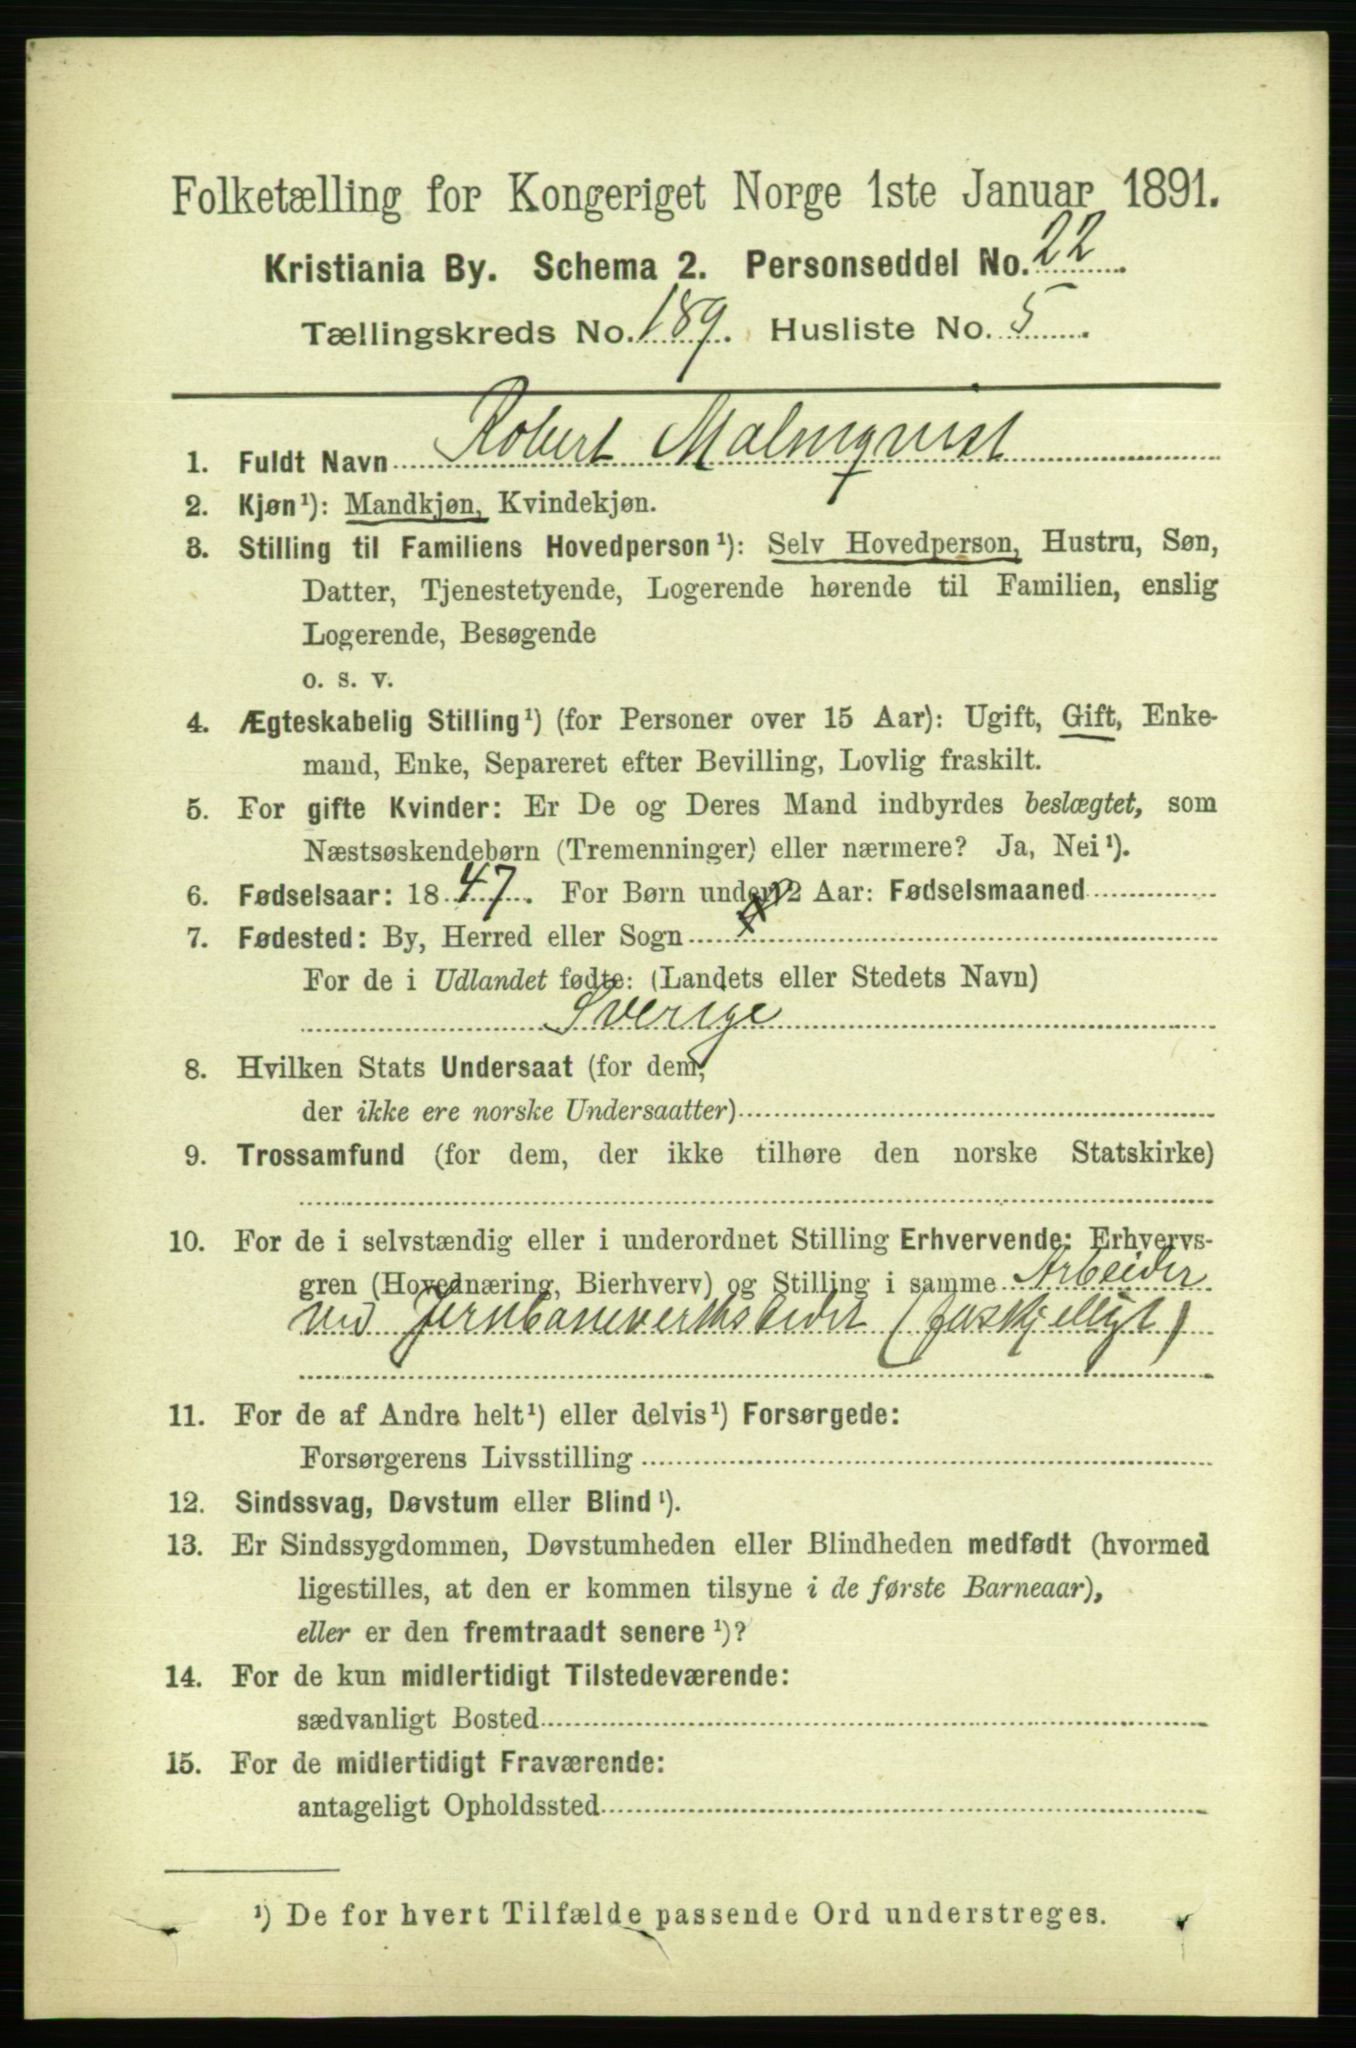 Folketælling for Kongeriget Norge 1ste Januar 1891.
Kristiania By. Schema 2. Personseddel No. 22
Tællingskreds No. 189. Husliste No. 5
1. Fuldt Navn Robert Malmqvist
2. Kjøn¹): Mandkjøn, Kvindekjøn.
3. Stilling til Familiens Hovedperson¹): Selv Hovedperson, Hustru, Søn,
Datter, Tjenestetyende, Logerende hørende til Familien, enslig
Logerende, Besøgende
o. s. v.
4. Ægteskabelig Stilling¹) (for Personer over 15 Aar): Ugift, Gift, Enke-
mand, Enke, Separeret efter Bevilling, Lovlig fraskilt.
5. For gifte Kvinder: Er De og Deres Mand indbyrdes beslægtet, som
Næstsøskendebørn (Tremenninger) eller nærmere? Ja, Nei¹).
6. Fødselsaar: 1847. For Børn under 2 Aar: Fødselsmaaned
7. Fødested: By, Herred eller Sogn
For de i Udlandet fødte: (Landets eller Stedets Navn)
Sverige
8. Hvilken Stats Undersaat (for dem,
der ikke ere norske Undersaatter)
9. Trossamfund (for dem, der ikke tilhøre den norske Statskirke)
10. For de i selvstændig eller i underordnet Stilling Erhvervende: Erhvervs-
gren (Hovednæring, Bierhverv) og Stilling i samme Arbeider
ved Jernbaneverkstedet
11. For de af Andre helt¹) eller delvis¹) Forsørgede:
Forsørgerens Livsstilling
12. Sindssvag, Døvstum eller Blind¹).
13. Er Sindssygdommen, Døvstumheden eller Blindheden medfødt (hvormed
ligestilles, at den er kommen tilsyne i de første Barneaar),
eller er den fremtraadt senere¹)?
14. For de kun midlertidigt Tilstedeværende:
sædvanligt Bosted
15. For de midlertidigt Fraværende:
antageligt Opholdssted
¹) De for hvert Tilfælde passende Ord understreges.